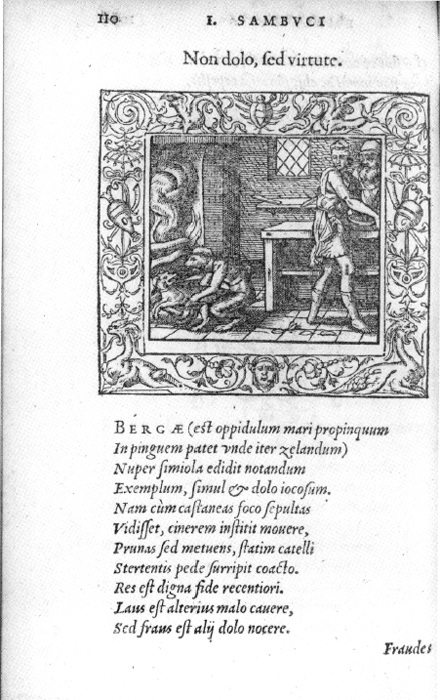 110 I. SAMBVCI
Non dolo, sed virtute.
BERGÆ (est oppidulum mari propinquum
In pinguem patet vnde iter zelandum)
Nuper simiola edidit notandum
Exemplum, simul & dolo iocosum.
Nam cùm castaneas foco sepultas
Vidisset, cinerem institit mouere,
Prunas sed metuens, statim catelli
Stertentis pede surripit coacto.
Res est digna fide recentiori.
Laus est alterius malo cauere,
Sed fraus est alij dolo nocere.
Fraudes